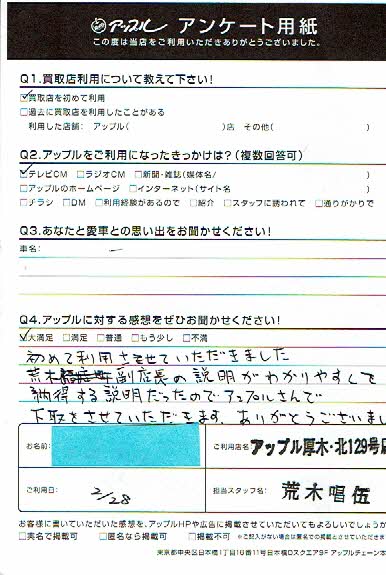 アップル アンケート用紙
この度は当店をご利用いただきありがとうございました。
Q1.買取店利用について教えて下さい!
☑買取店を初めて利用
□過去に買取店を利用したことがある
利用した店舗: アップル( )店 その他( )
Q2.アップルをご利用になったきっかけは?(複数回答可)
☑テレビCM □ラジオCM □新聞・雑誌(媒体名/ )
□アップルのホームページ □インターネット(サイト名 )
□チラシ □DM □利用経験があるので □紹介 □スタッフに誘われて □通りがかりで
Q3.あなたと愛車との思い出をお聞かせください!
車名: ー
Q4.アップルに対する感想をぜひお聞かせください!
☑大満足 □満足 □普通 □もう少し □不満
初めて利用させていただきました
荒木副店長の説明がわかりやすくて
納得する説明だったのでアップルさんで
下取させていただきます。ありがとうございまし
お名前:
ご利用店名 アップル厚木・北129号店
ご利用日: 2/28
担当スタッフ名: 荒木唱伍
お客様に書いていただいた感想を、アップルHPや広告に掲載させていただいてもよろしいでしょうか
□実名で掲載可 □匿名なら掲載可 □掲載不可 ※ご記入がない場合は匿名での掲載とさせていただきます
東京都中央区日本橋1丁目16番11号日本橋Dスクエア9F アップルチェーン本